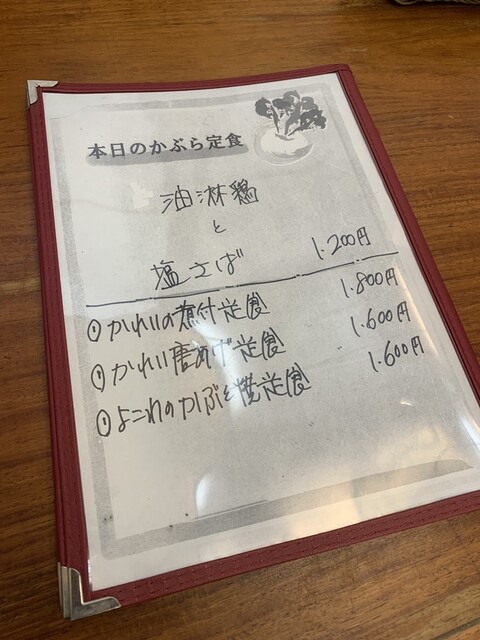 本日のかぶら定食
油淋鶏
と
塩さば 1.200円
①かれいの煮付定食 1.800円
①かれい唐あげ定食 1.600円
①よこわのかぶと焼定食 1.600円